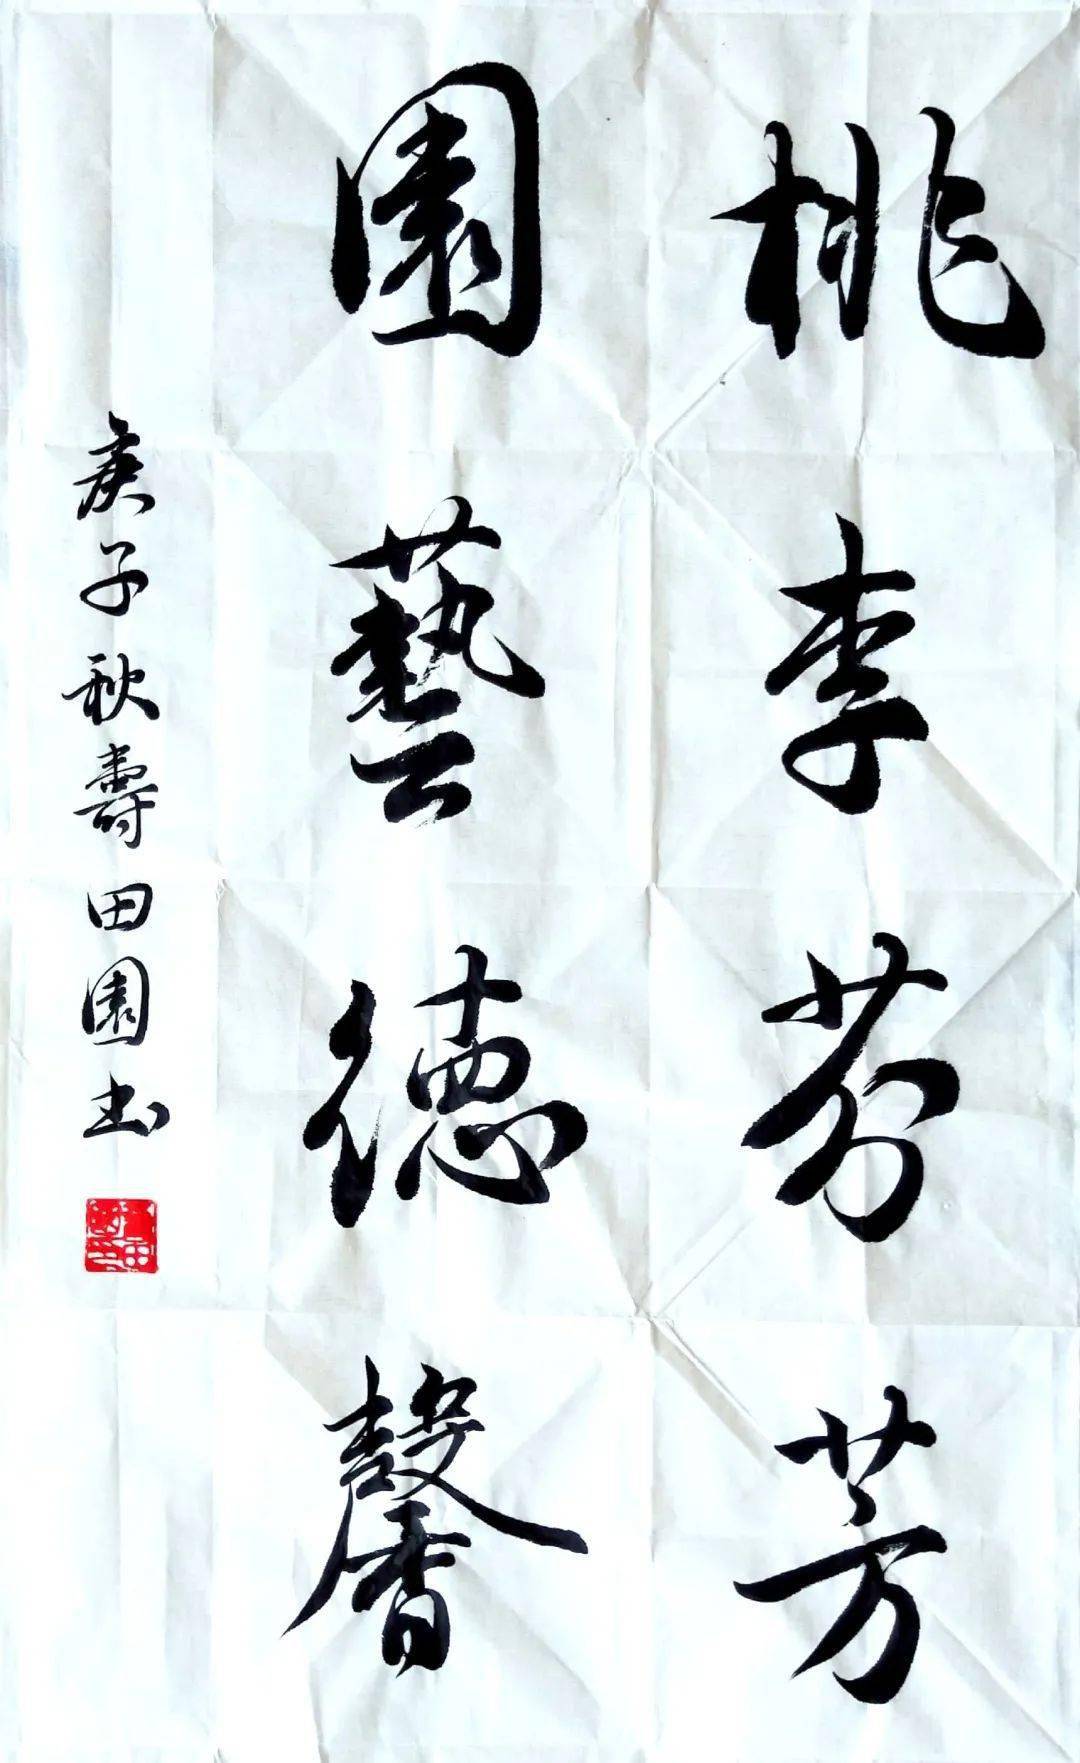 桃李芬芳
園藝德馨
庚子秋壽田園书